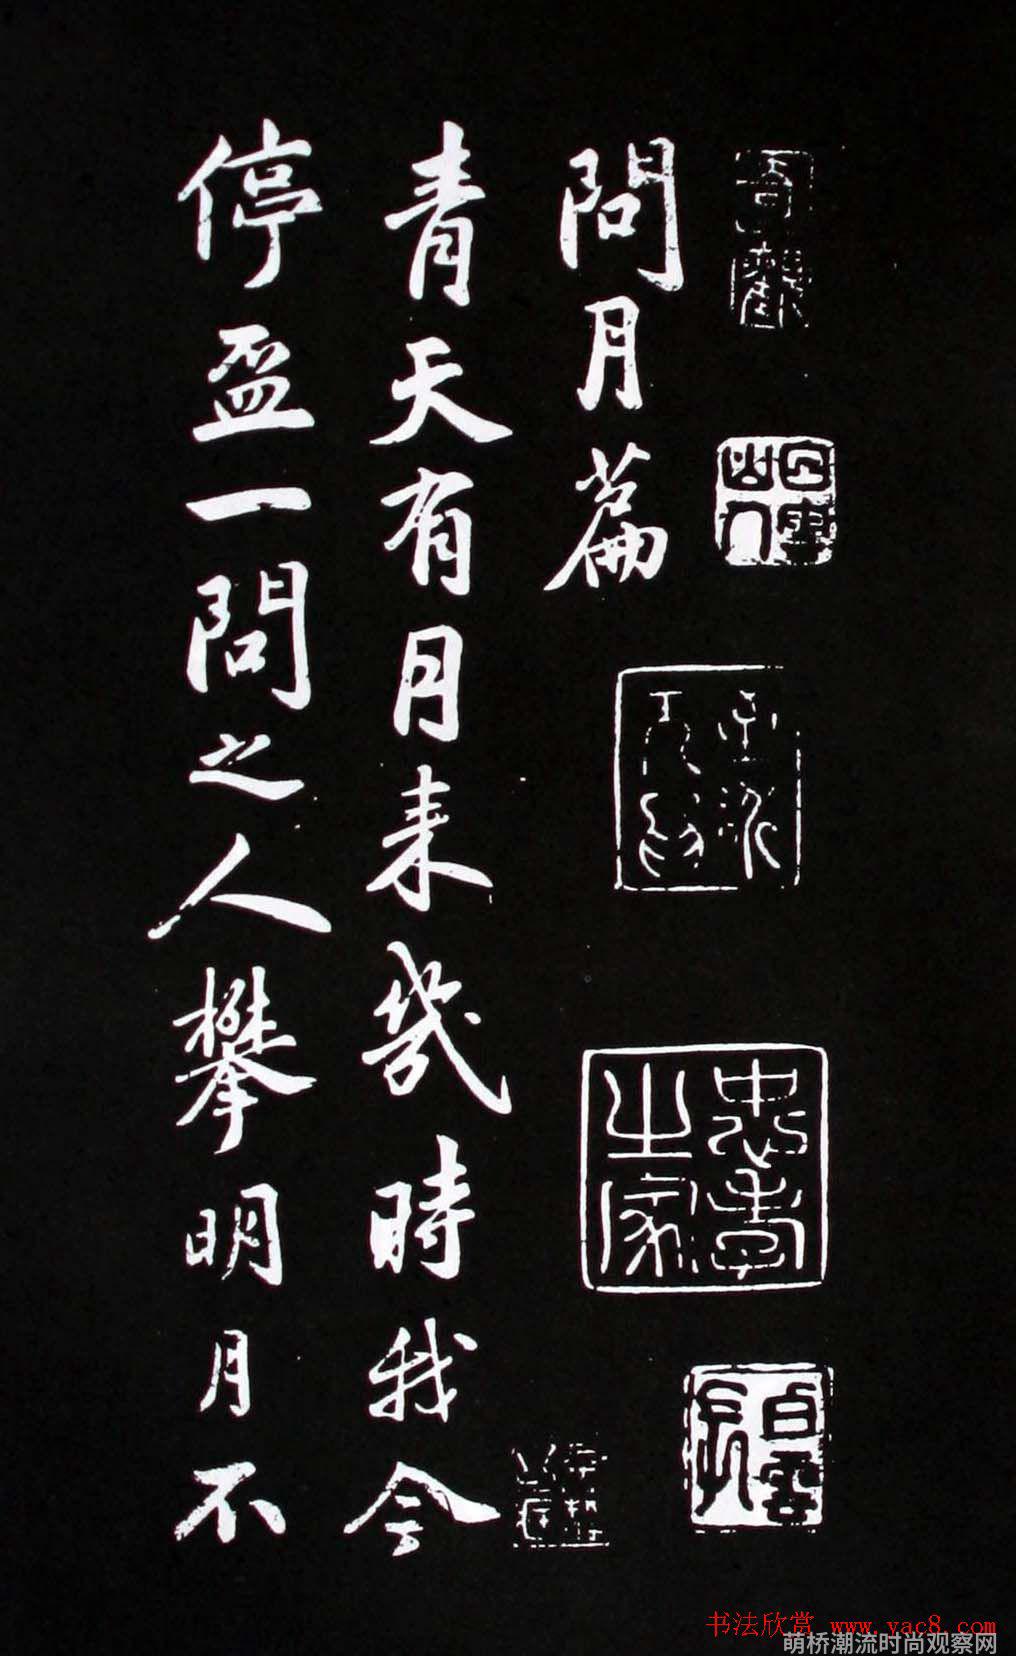 忠孝
之家
問月篇
青天有月来幾時我今
停盃一問之人攀明月不
书法欣赏 www.yac8.com
萌桥潮流时尚观察网